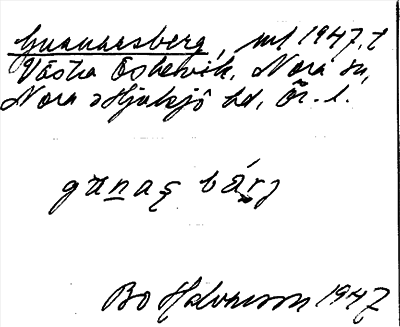 Gunnarsberg, ml 1947, t
Västra Öskevik, Nora sn,
Nora o Hjulsjö hd, Ör. l.
gunaṣ bárj
Bo 1947